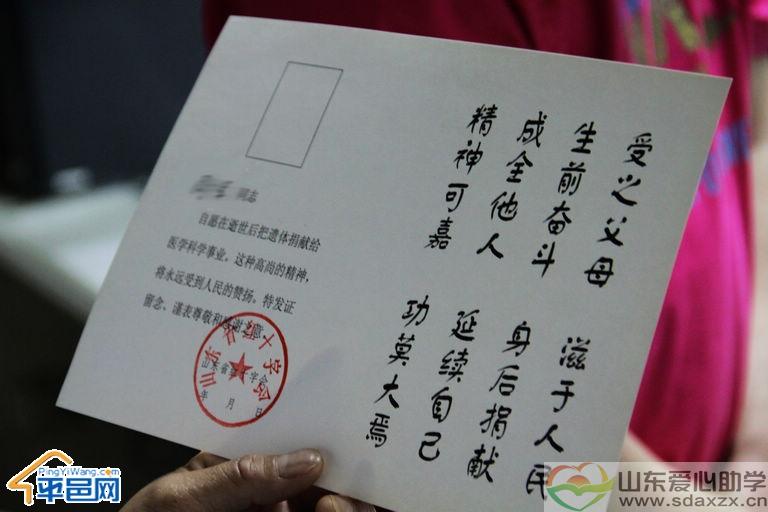 同志
自愿在逝世后把遗体捐献给
医学科学事业。这种高尚的精神，
将永远受到人民的赞扬。特发证
留念、谨表尊敬和感谢之意。
山东省红十字会
年 月 日
山东省红十字会
受之父母 滋于人民
生前奋斗 身后捐献
成全他人 延续自己
精神可嘉 功莫大焉
PingYiWang.com
平邑网
山东爱心助学
www.sdaxzx.cn